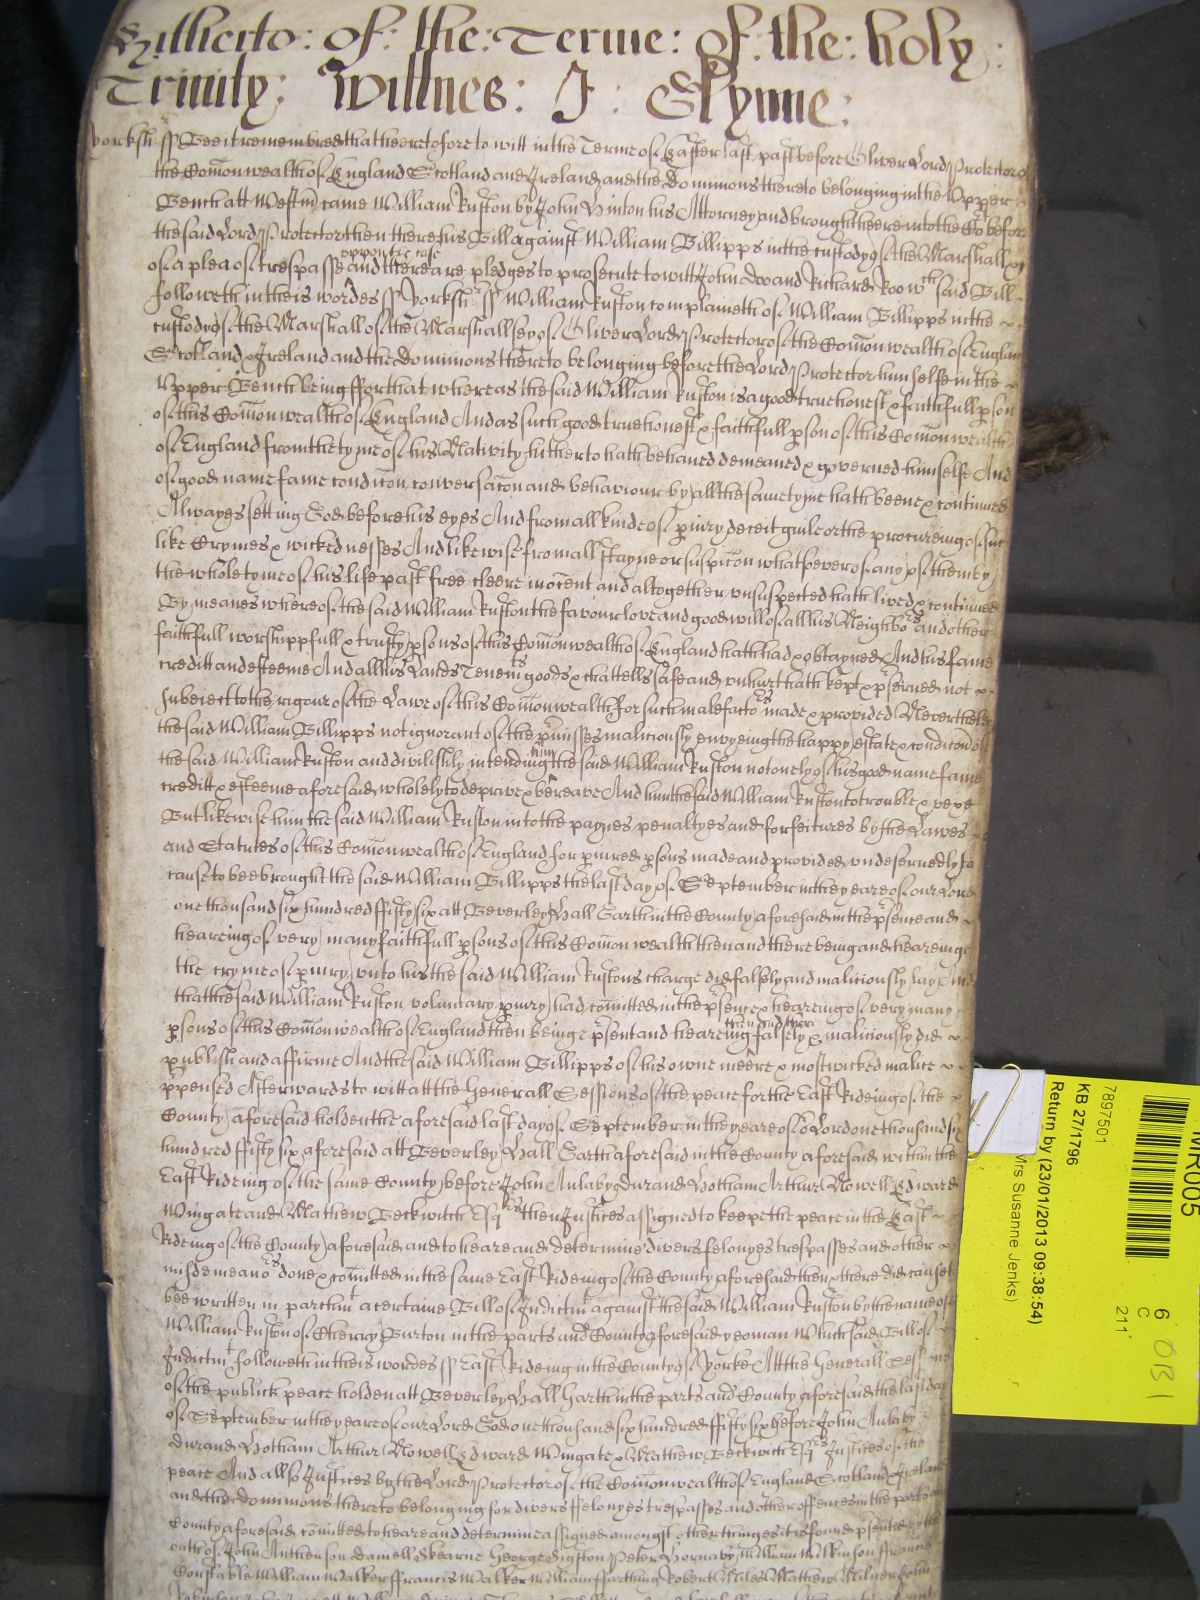 Hitherto: of: the: Terme: of: the: holy:
Trinity: Wittnes: J: Glynne:
Yorksh: ss Bee it remembred that heeretofore to witt in the Terme of Easter last past before Oliver Lord Protector of
the Com̄onwealth of England Scotland and Ireland and the dominions thereto belonging in the Upper
Bench att Westm̄ came William Ruston by John Hinton his Attorney and brought heere into the Co before
the said Lord Protector then there his Bill against William Billipps in the custody of the Marshall &c
of a plea of trespasse upon the case and there are pledges to prosecute to witt John Doo and Richard Roo wch said Bill
followeth in theis wordes ss Yorksh: ss William Ruston complaineth of William Billipps in the
custody of the Marshall of the Marshallsey of Oliver Lord Protector of the Com̄onwealth of England
Scotland & Ireland and the dominions thereto belonging before the Lord Protector himselfe in the
Upper Bench being ffor that whereas the said William Ruston is a good true honest & faithfull pson
of this Com̄onwealth of England And as such good true honest & faithfull pson of this Com̄onwealth
of England from the tyme of his Nativity hitherto hath behaved demeaned & governed himselfe And
of good name fame condic̄on conversac̄on and behaviour by all the same tyme hath beene & continued
Alwayes setting God before his eyes And from all kinde of piury deceit guile or the procureing of such
like Crymes & wickednesses And likewise from all stayne or suspic̄on whatsoever of any of them by
the whole tyme of his life past free cleere inocent and altogether unsuspected hath lived & continued
By meanes whereof the said William Ruston the favour love and goodwill of all his Neighbors and other
faithfull worshippfull & trusty psons of this Com̄onwealth of England hath had & obtayned And his fame
creditt and esteeme And all his Lands Tenemts goods & chattells safe and unhurt hath kept & pserved not
subiect to the rigour of the Lawe of this Com̄onwealth for such malefactors made & provided Neverthelesse
the said William Billipps not ignorant of the pmisses maliciously envyeing the happy estate & condic̄on of
the said William Ruston and divilishly intending him the said William Ruston not onely of his good name fame
creditt & esteeme aforesaid wholely to deprive & bereave And him the said William Ruston to trouble & vexe
But likewise him the said William Ruston into the paynes penaltyes and forfeitures by the Lawes
and Statutes of this Com̄onwealth of England for piured psons made and provided undeservedly to
cause to bee brought the said William Billipps the last day of September in the yeare of our Lord
one thousand six hundred ffifty six att Beverley Hall Garth in the County aforesaid in the psence and
heareing of very many faithfull psons of this Com̄onwealth then and there being and heareinge
the cryme of piury unto his the said William Rustons charge did falsely and maliciously lay And
that the said William Ruston voluntary piury had com̄itted in the psence & heareing of very many
psons of this Com̄onwealth of England then beinge psent and heareing then and there falsely & maliciously did
publish and affirme And the said William Billipps of his owne meere & most wicked malice
ppensed Afterwards to witt att the Generall Sessions of the peace for the East Rideing of the
County aforesaid holden the aforesaid last day of September in the yeare of or Lord one thousand six
hundred ffifty six aforesaid att Beverley Hall Garth aforesaid in the County aforesaid within the
East Rideing of the same County before John Anlaby Durand Hotham Arthur Nowell Edward
Wingate and Mathew Beckwith Esqrs then Justices assigned to keepe the peace in the East
Rideing of the County aforesaid and to heare and determine divers felonyes trespasses and other
misdemeanors done & com̄itted in the same East Rideing of the County aforesaid then & there did cause to
bee written in parchmt a certaine Bill of Indictmt against the said William Ruston by the name of
William Ruston of Cherry Burton in the parts and County aforesaid yeoman Which said Bill of
Indictmt followeth in theis wordes ss East Rideing in the County of Yorke Att the Generall Sessions
of the publick peace holden att Beverley Hall Garth in the parts and County aforesaid the last day
of September in the yeare of our Lord God one thousand six hundred ffifty six before John Anlaby
Durand Hotham Arthur Nowell Edward Wingate & Mathew Beckwith Esqrs Justices of the
peace And allso Justices by the Lord Protector of the Com̄onwealth of England Scotland & Ireland
and the dominions thereto belonging for divers ffelonyes trespasses and other offences in the parts and
County aforesaid com̄itted to heare and determine assigned amongst other thinges it is found psented by the
oath of John Anthenson Daniell Skearne George Sigston Peter Hornaby William Wilkinson ffrancis
Constable William Walker ffrancis Walker William ffarthing Robert Miles Mathew Milner John
7897501
KB 27/1796
Return by (23/01/2013 09:38:54)
Mrs Susanne Jenks)
MR005
6
C
211